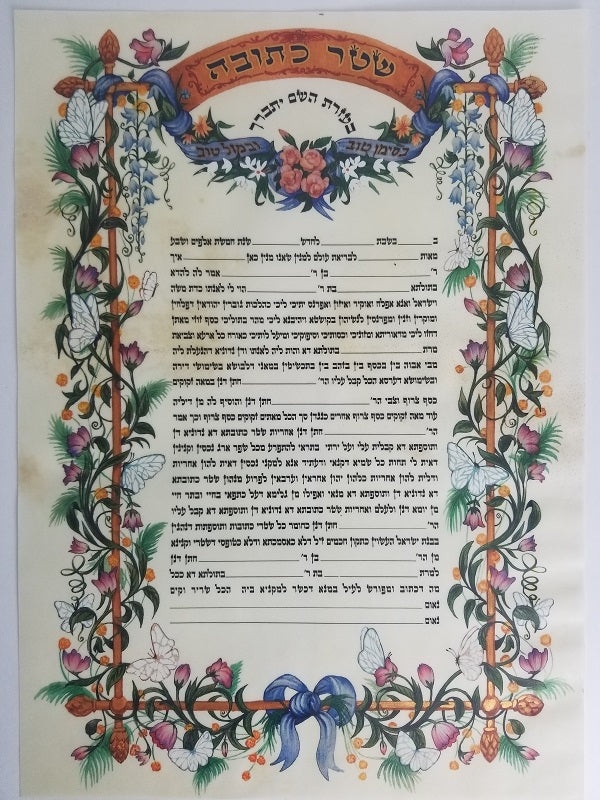 שטר כתובה
בעזרת השם יתברך
בסימן טוב ובמזל טוב
ב______בשבת________לחדש________שנת חמשת אלפים ושבע
מאות________לבריאת עולם למנין שאנו מנין כאן________איך
ר'________בן ר'________אמר לה להדא
בתולתא________בת ר'________הוי לי לאנתו כדת משה
וישראל ואנא אפלח ואוקיר ואיזון ואפרנס יתיכי ליכי כהלכות גוברין יהודאין דפלחין
ומוקרין וזנין ומפרנסין לנשיהון בקושטא ויהיבנא ליכי מהר בתוליכי כסף זוזי מאתן
דחזו ליכי מדאוריתא ומזוניכי וכסותיכי וסיפוקיכי ומיעל לותיכי כאורח כל ארעא וצביאת
מרת________בתולתא דא והות ליה לאנתו ודן נדוניא דהנעלת ליה
מבי אבוה בין בכסף בין בזהב בין בתכשיטין במאני דלבושא בשימושי דירה
ובשימושא דערסא הכל קבל עליו הר'________חתן דנן במאה זקוקים
כסף צרוף וצבי הר'________חתן דנן והוסיף לה מן דיליה
עוד מאה זקוקים כסף צרוף אחרים כנגדן סך הכל מאתים זקוקים כסף צרוף וכך אמר
הר'________חתן דנן אחריות שטר כתובתא דא נדוניא דן
ותוספתא דא קבלית עלי ועל ירתי בתראי להתפרע מכל שפר ארג נכסין וקנינין
דאית לי תחות כל שמיא דקנאי ודעתיד אנא למקני נכסין דאית להון אחריות
ודלית להון אחריות כלהון יהון אחראין וערבאין לפרוע מנהון שטר כתובתא
דא נדוניא דן ותוספתא דא מנאי ואפילו מן גלימא דעל כתפאי בחיי ובתר חיי
מן יומא דנן ולעלם ואחריות שטר כתובתא דא נדוניא דן ותוספתא דא קבל עליו
הר'________חתן דנן כחומר כל שטרי כתובות ותוספתות דנהגין
בבנת ישראל העשוין כתקון חכמים ז"ל דלא כאסמכתא ודלא כטופסי דשטרי וקנינא
מן הר'________בן ר'________חתן דנן
למרת________בת ר'________בתולתא דא ככל
מה דכתוב ומפורש לעיל במנא דכשר למקניא ביה הכל שריר וקים
נאום________
נאום________